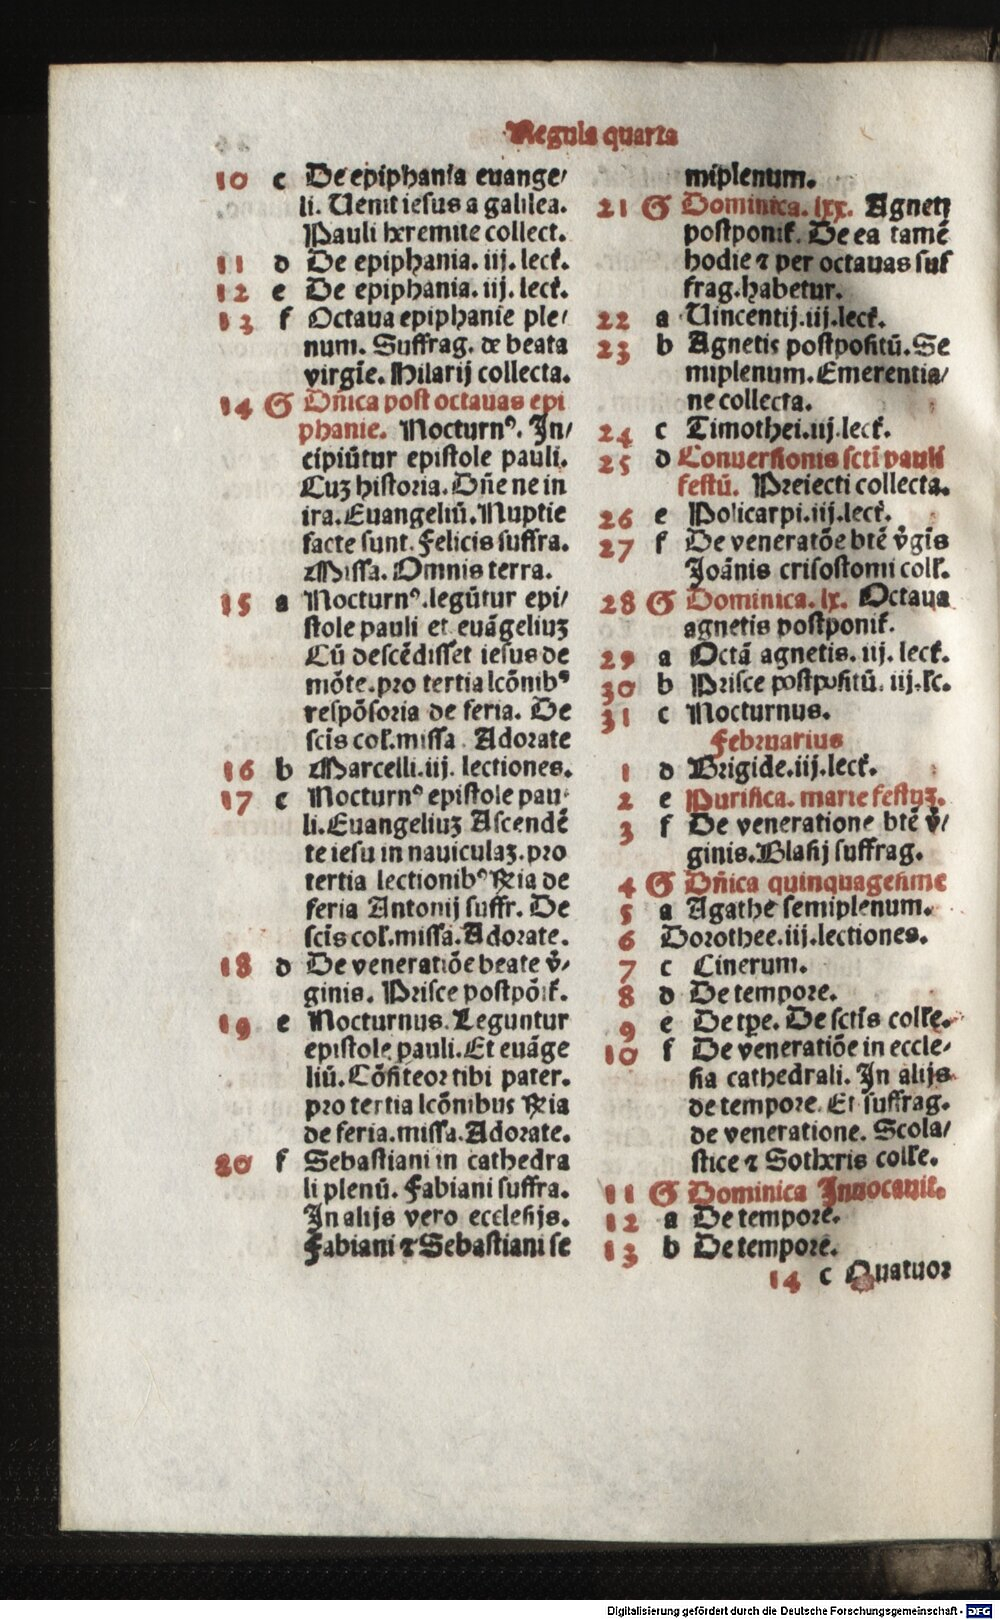 Regula quarta
10 c De epiphania euange/
li. Uenit iesus a galilea.
Pauli heremite collect.
11 d De epiphania. iij. lect̄.
12 e De epiphania. iij. lect̄.
13 f Octaua epiphanie ple/
num. Suffrag. de beata
virgīe. Hilarij collecta.
14 G Dn̄ica post octauas epi
phanie. Nocturnꝰ. In/
cipiūtur epistole pauli.
Cuꝫ historia. Dn̄e ne in
ira. Euangeliū. Nuptie
facte sunt. Felicis suffra.
Missa. Omnis terra.
15 a Nocturnꝰ. legūtur epi/
stole pauli et euāgeliuꝫ
Cū descēdisset iesus de
mōte. pro tertia lcōnibꝰ
respōsoria de feria. De
scīs col̄. missa. Adorate
16 b Marcelli. iij. lectiones.
17 c Nocturnꝰ epistole pau
li. Euangeliuꝫ Ascendē
te iesu in nauiculaꝫ. pro
tertia lectionibꝰ Rͤia de
feria Antonij suffr. De
scīs col̄. missa. Adorate.
18 d De veneratiōe beate v̄/
ginis. Prisce postpōit̄.
19 e Nocturnus. Leguntur
epistole pauli. Et euāge
liū. Cōfiteor tibi pater.
pro tertia lcōnibus Rͤia
de feria. missa. Adorate.
20 f Sebastiani in cathedra
li plenū. Fabiani suffra.
In alijs vero ecclesijs.
Fabiani ⁊ Sebastiani se
miplenum.
21 G Dominica. lxx. Agnetꝭ
postponit̄. De ea tamē
hodie ⁊ per octauas suf
frag. habetur.
22 a Uincentij. iij. lect̄.
23 b Agnetis postpositū. Se
miplenum. Emerentia/
ne collecta.
24 c Timothei. iij. lect̄.
25 d Conuersionis scti pauli
festū. Preiecti collecta.
26 e Policarpi. iij. lect̄.
27 f De veneratōe btē v̄gīs
Joānis crisostomi coll̄.
28 G Dominica. lx. Octaua
agnetis postponit̄.
29 a Octā agnetis. iij. lect̄.
30 b Prisce postpositū. iij. lc̄.
31 c Nocturnus.
Februarius
1 d Brigide. iij. lect̄.
2 e Purifica. marie festuꝫ.
3 f De veneratione btē v̄/
ginis. Blasij suffrag.
4 G Dn̄ica quinquagesime
5 a Agathe semiplenum.
6 Dorothee. iij. lectiones.
7 c Cinerum.
8 d De tempore.
9 e De tp̄e. De sctīs coll̄e.
10 f De veneratiōe in eccle/
sia cathedrali. In alijs
de tempore. Et suffrag.
de veneratione. Scola/
stice ⁊ Sotheris coll̄e.
11 G Dominica Inuocauit.
12 a De tempore.
13 b De tempore.
14 c Quatuor
Digitalisierung gefördert durch die Deutsche Forschungsgemeinschaft - DFG